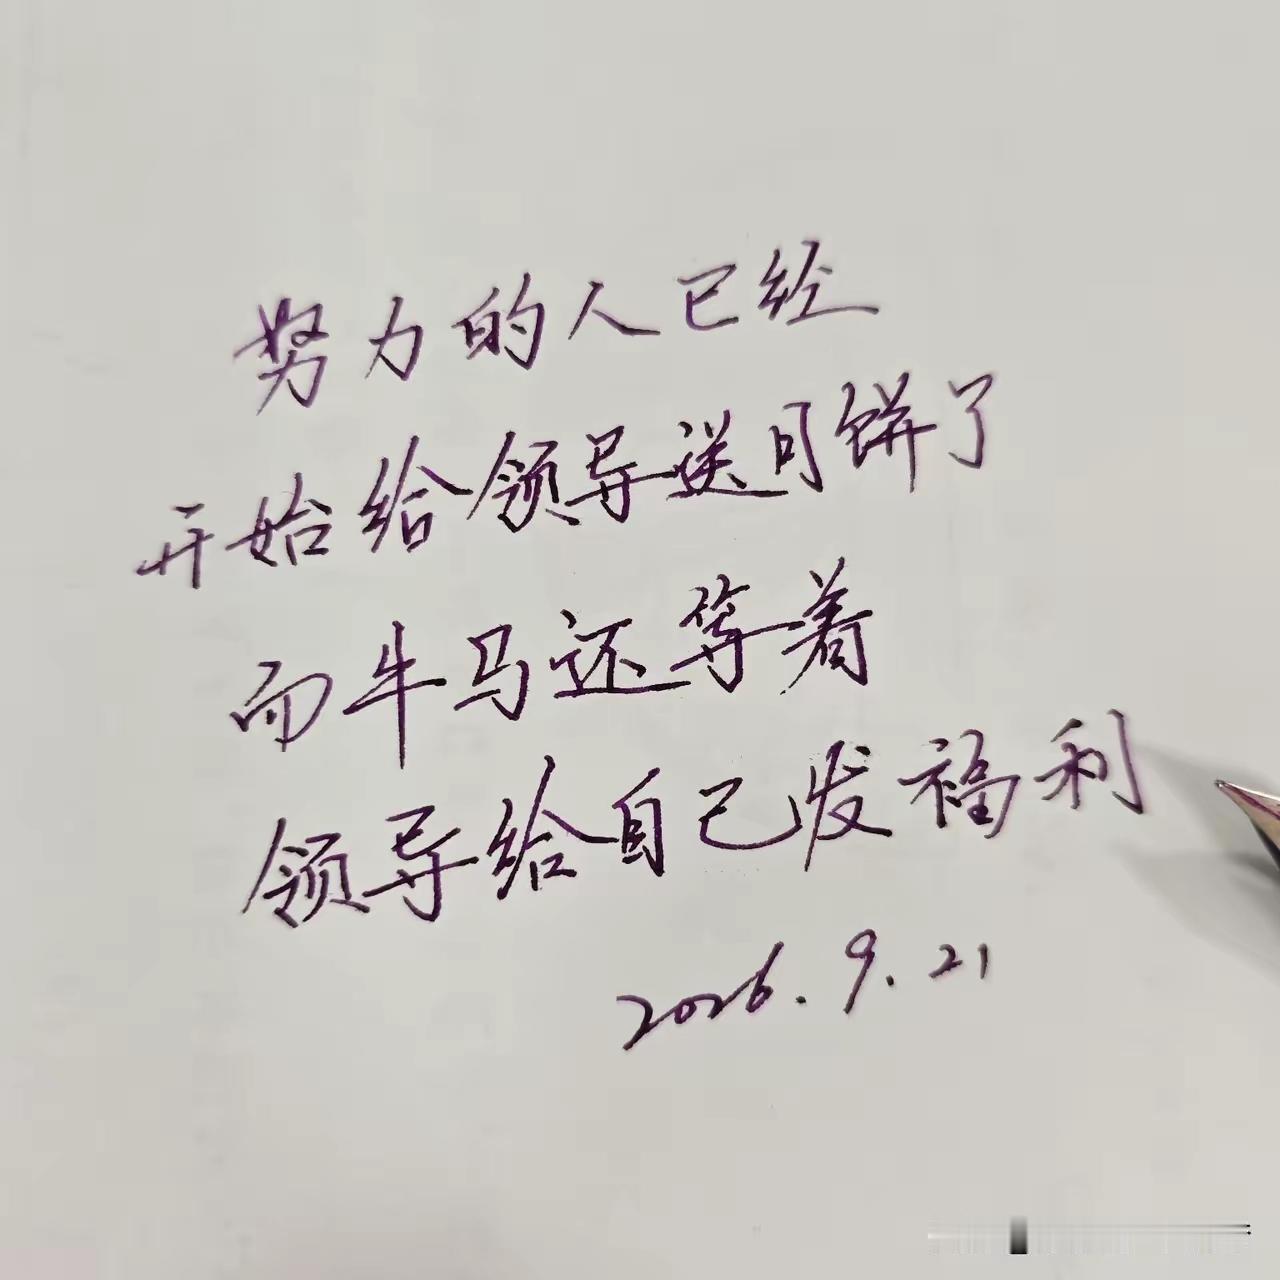 努力的人已经
开始给领导送月饼了
而牛马还等着
领导给自己发福利
2026.9.21